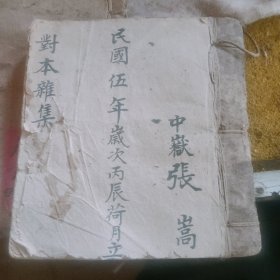 中嶽張嵩
民國伍年歲次丙辰荷月立
對本雜集